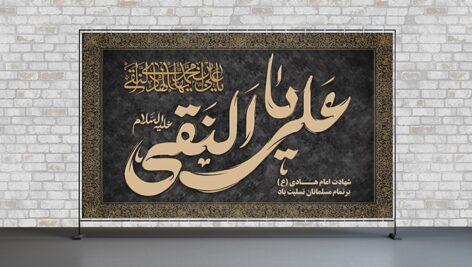 یا علی بن محمد ایها الهادی النقی
یا علی النقی
علیه السلام
شهادت امام هــادی (ع)
بر تمام مسلمانان تسلیت باد